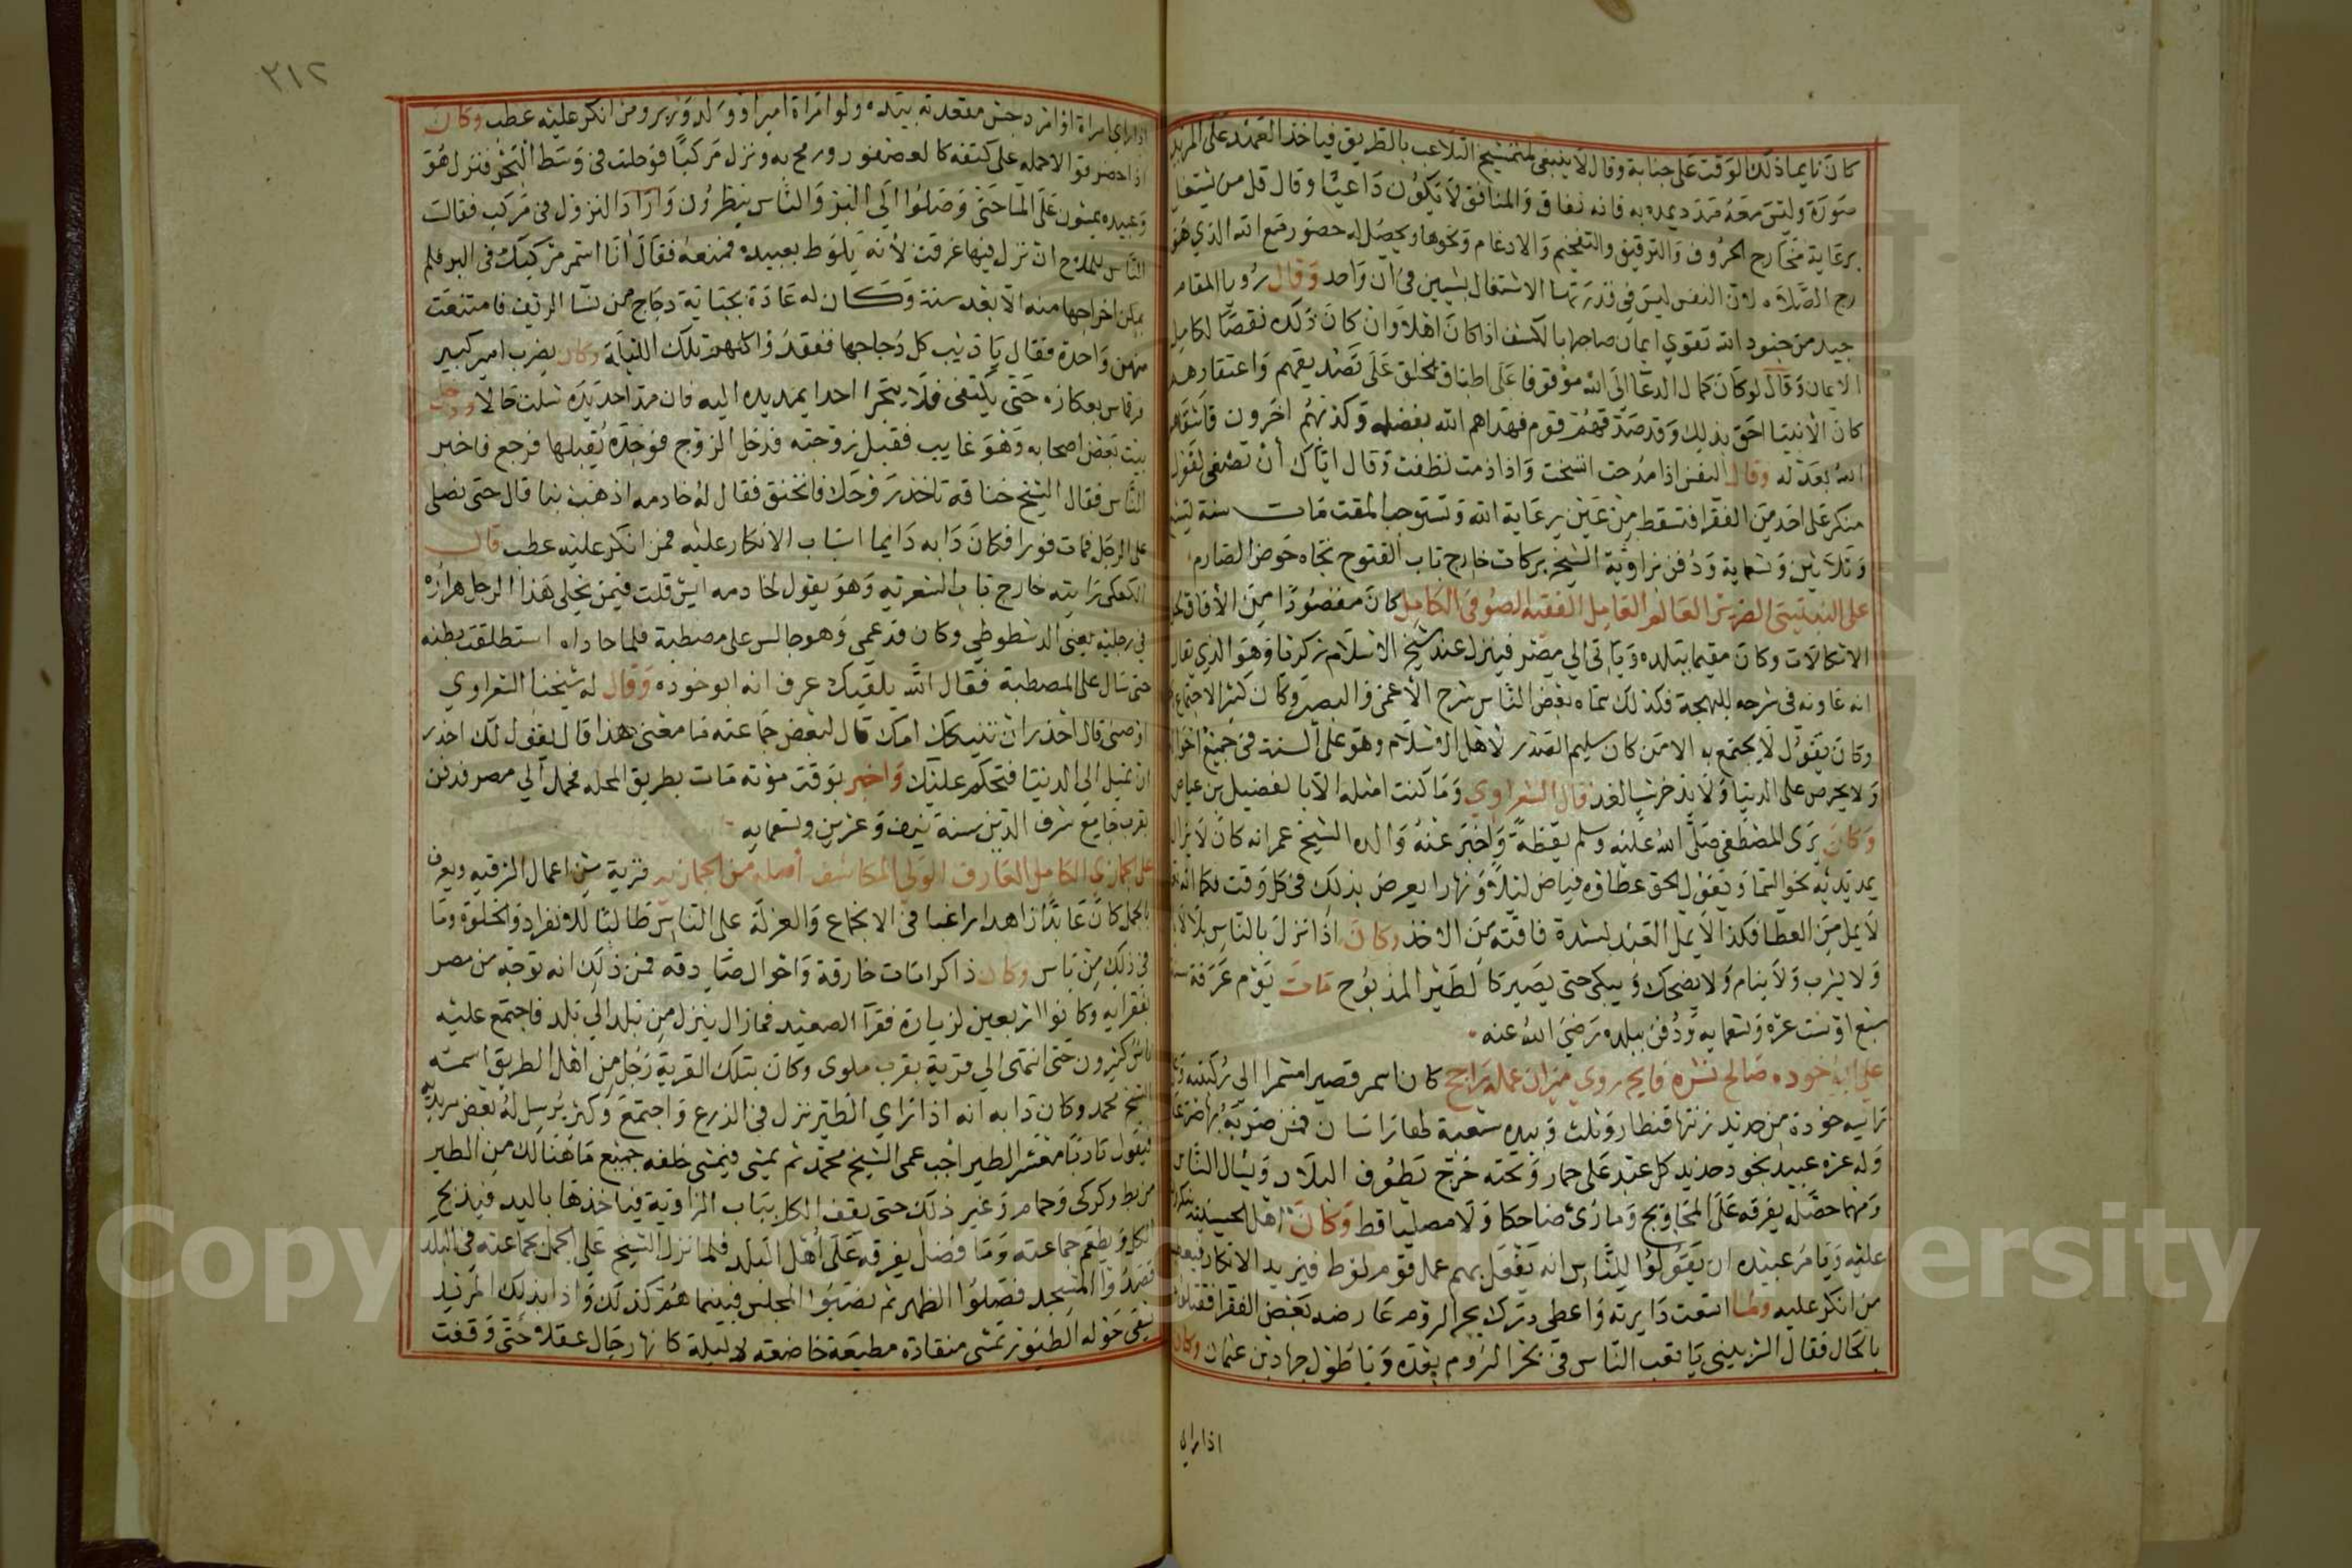 كان نايما ذلك الوقت على جنابة وقال لا ينبغي لمتمشيخ التلاعب بالطريق فياخذ العهد على المريد
صورة وليس معه مدد يمده به فانه نفاق والمنافق لا يكون داعيا وقال قل من يشتغل
برعاية مخارج الحروف والترقيق والتفخيم والادغام ونحوها ويحصل له حضور مع الله الذي هو
روح الصلاه لان النفس ليس في قدرتها الاشتغال بشيين في ان واحد وقال رويا المقام
جيد من جنود الله تقوي ايمان صاحبها بالكشف اذا كان اهلا وان كان ذلك نقصا لكامل
الايمان وقال لو كان كمال الدعا الى الله موقوفا على اطباق الخلق على تصديقهم واعتقادهم
كان الانبيا احق بذلك وقد صدقهم قوم فهداهم الله بفضله وكذبهم اخرون فاشقاهم
الله بعدله وقال النفس اذا مدحت اتسخت واذا ذمت نظفت وقال اياك ان تصغى لقول
منكر على احد من الفقرا فتسقط من عين رعاية الله وتستوجب المقت مات سنة
وثلاثين وتسماية ودفن بزاوية الشيخ بركات خارج باب الفتوح تجاه حوض الصارم
على النبتيتي الضرير العالم العامل الفقيه الصوفي الكامل كان مقصودا من الافاق لحل
الاشكالات وكان مقيما ببلده وياتي الي مصر فينزل عند شيخ الاسلام زكريا وهو الذي يقال
انه عاونه في شرحه للبهجة فكذلك سماه بعض الناس شرح الاعمى والبصير وكان كثير الاجتماع
وكان يقول لا يجتمع به الا من كان سليم الصدر لاهل الاسلام وهو على السنة في جميع احواله
ولا يحرص على الدنيا ولا يدخر شيا لغد قال الشعراوي وما كنت امثله الا بالفضيل بن عياض
وكان يرى المصطفى صلى الله عليه وسلم يقظة واخبر عنه والده الشيخ عمر انه كان لا يزال
يمد يديه نحو السما ويقول لحق عطاؤه فياض ليلا ونهارا يعرض بذلك في كل وقت فكما انه
لا يمل من العطا فكذا لا يمل العبد لشدة فاقته من الاخذ وكان اذا نزل بالناس بلا لا
ولا يشرب ولا ينام ولا يضحك ويبكي حتى يصير كالطير المذبوح مات يوم عرفة سنة
سبع او ست عشرة وتسعمايه ودفن ببلده رضي الله عنه
علي ابو خوده صالح نشره فايح روي ميزان عمله راجح كان اسمر قصيرا مشمرا الي ركبتيه
راسيه خودة من حديد زنتها قنطار وثلث وبيده شعبة لها راسان فمن ضربه بها
وله عشرة عبيد بخود حديد كل عبد على حمار وتحته خرج تطوف البلاد ويسال الناس
ومهما حصله يفرقه على المحاويج وما رئ ضاحكا ولا مصليا قط وكان اهل الحسينية
عليه ويامر عبيده ان يقولوا للناس انه يفعل بهم عمل قوم لوط فيزيد الانكار
من انكر عليه ولما اتسعت دايرته واعطي درك بحر الروم عارضه بعض الفقرا
بالحال فقال الزبيني يا تعب الناس في بحر الروم بعده ويا طول جهاد بن عثمان وكان
اذا راى
٣١٢
اذا راى امراة او امرد جس مقعدته بيده ولو امراة امير او ولد وزير ومن انكر عليه عطب وكان
اذا حضر قوالا حمله على كتفه كالعصفور ورمح به ونزل مركبا فوحلت في وسط البحر فنزل هو
وعبيده يمشون على الما حتى وصلوا الي البر والناس ينظرون واراد النزول في مركب فقالت
الناس للملاح ان نزل فيها غرقت لانه يلوط بعبيده فمنعه فقال انا اسمر مركبك في البر فلم
يمكن اخراجها منه الا بعد سنة وكان له عادة بجباية دجاج من نسا الريف فامتنعت
منهن واحدة فقال يا ديب كل دجاجها ففقدوا كلهن تلك الليلة وكان يضرب امير كبير
قرقماس بعكازه حتى يكتفي فلا يتجرا احدا يمد يده اليه فان مد احد يده شلت حالا ودخل
بيت بعض اصحابه وهو غايب فقبل زوجته فدخل الزوج فوجده يقبلها فرجع فاخبر
الناس فقال الشيخ خناقه تاخذ روحك فانخنق فقال له خادمه اذهب بنا قال حتى نصلي
على الرجل فمات فورا فكان دابه دايما اسباب الانكار عليه فمن انكر عليه عطب قال
الكعكي رايته خارج باب الشعريه وهو يقول لخادمه ايش قلت فيمن يخلي هذا الرجل هراره
في رجليه يعني الدشطوطي وكان قد عمي وهو جالس على مصطبة فلما حاداه استطلقت بطنه
حتى سال على المصطبة فقال الله يلقيك عرف انه ابو خوده وقال له شيخنا الشعراوي
اوصني قال احذر ان تنيكك امك قال لبعض جماعته ما معنى هذا قال يقول لك احذر
ان تميل الى الدنيا فتحكم عليك واخبر بوقت موته مات بطريق المحله فحمل الي مصر فدفن
بقرب جامع شرف الدين سنة نيف وعشرين وتسعمايه
على الجمازي الكامل العارف الولي المكاشف أصله من الجمازيه قرية من اعمال الشرقيه ويعرف
بالجمل كان عابدا زاهدا راغبا في الانجماع والعزلة على الناس طالبا للانفراد والخلوة وما
في ذلك من باس وكان ذا كرامات خارقة واحوال صادقه فمن ذلك انه توجه من مصر
بفقرايه وكانوا اربعين لزيارة فقرآ الصعيد فمازال ينزل من بلد الي بلد فاجتمع عليه
ناس كثيرون حتى انتهى الي قرية بقرب ملوى وكان بتلك القرية رجل من اهل الطريق اسمه
الشيخ محمد وكان دابه انه اذا راي الطير نزل في الزرع واجتمع وكثر يرسل له بعض مريديه
فيقول تادبا معشر الطير اجب عمي الشيخ محمد ثم يمشي فيمشي خلفه جميع ما هنالك من الطير
من بط وكركي وحمام وغير ذلك حتى يقف الكل بباب الزاوية فياخذها باليد فيذبح
الكل ويطعم جماعته وما فضل يفرقه على اهل البلد فلما نزل الشيخ على الجمل بجماعته في البلد
قصدوا المسجد فصلوا الظهر ثم نصبوا المجلس فبينما هم كذلك واذا بذلك المريد
بقى حوله الطيور تمشي منقادة مطيعة خاضعه ذليلة كانها رجال عقلا حتى وقفت
Copyright © King Saud University